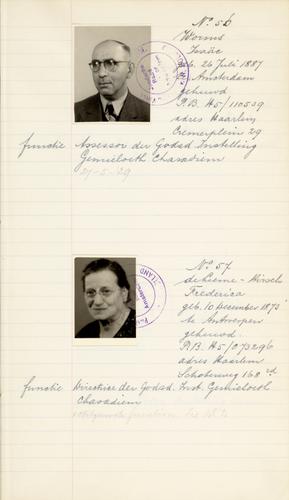 No. 56
Worms
Isaäc
geb. 26 Juli 1887
Amsterdam
gehuwd
P.B. H5/110539
adres Haarlem
Cremerplein 29
functie Assessor der Godsd. Instelling
Gemieloeth Chasadiem
No. 57.
de Leeme - Hirsch
Frederica
geb. 10 December 1873
te Antwerpen
gehuwd.
P.B. H5/073296
adres Haarlem
Schoterweg 168 rd
functie Directrice der Godsd. Inst. Gemieloeth
Chasadiem